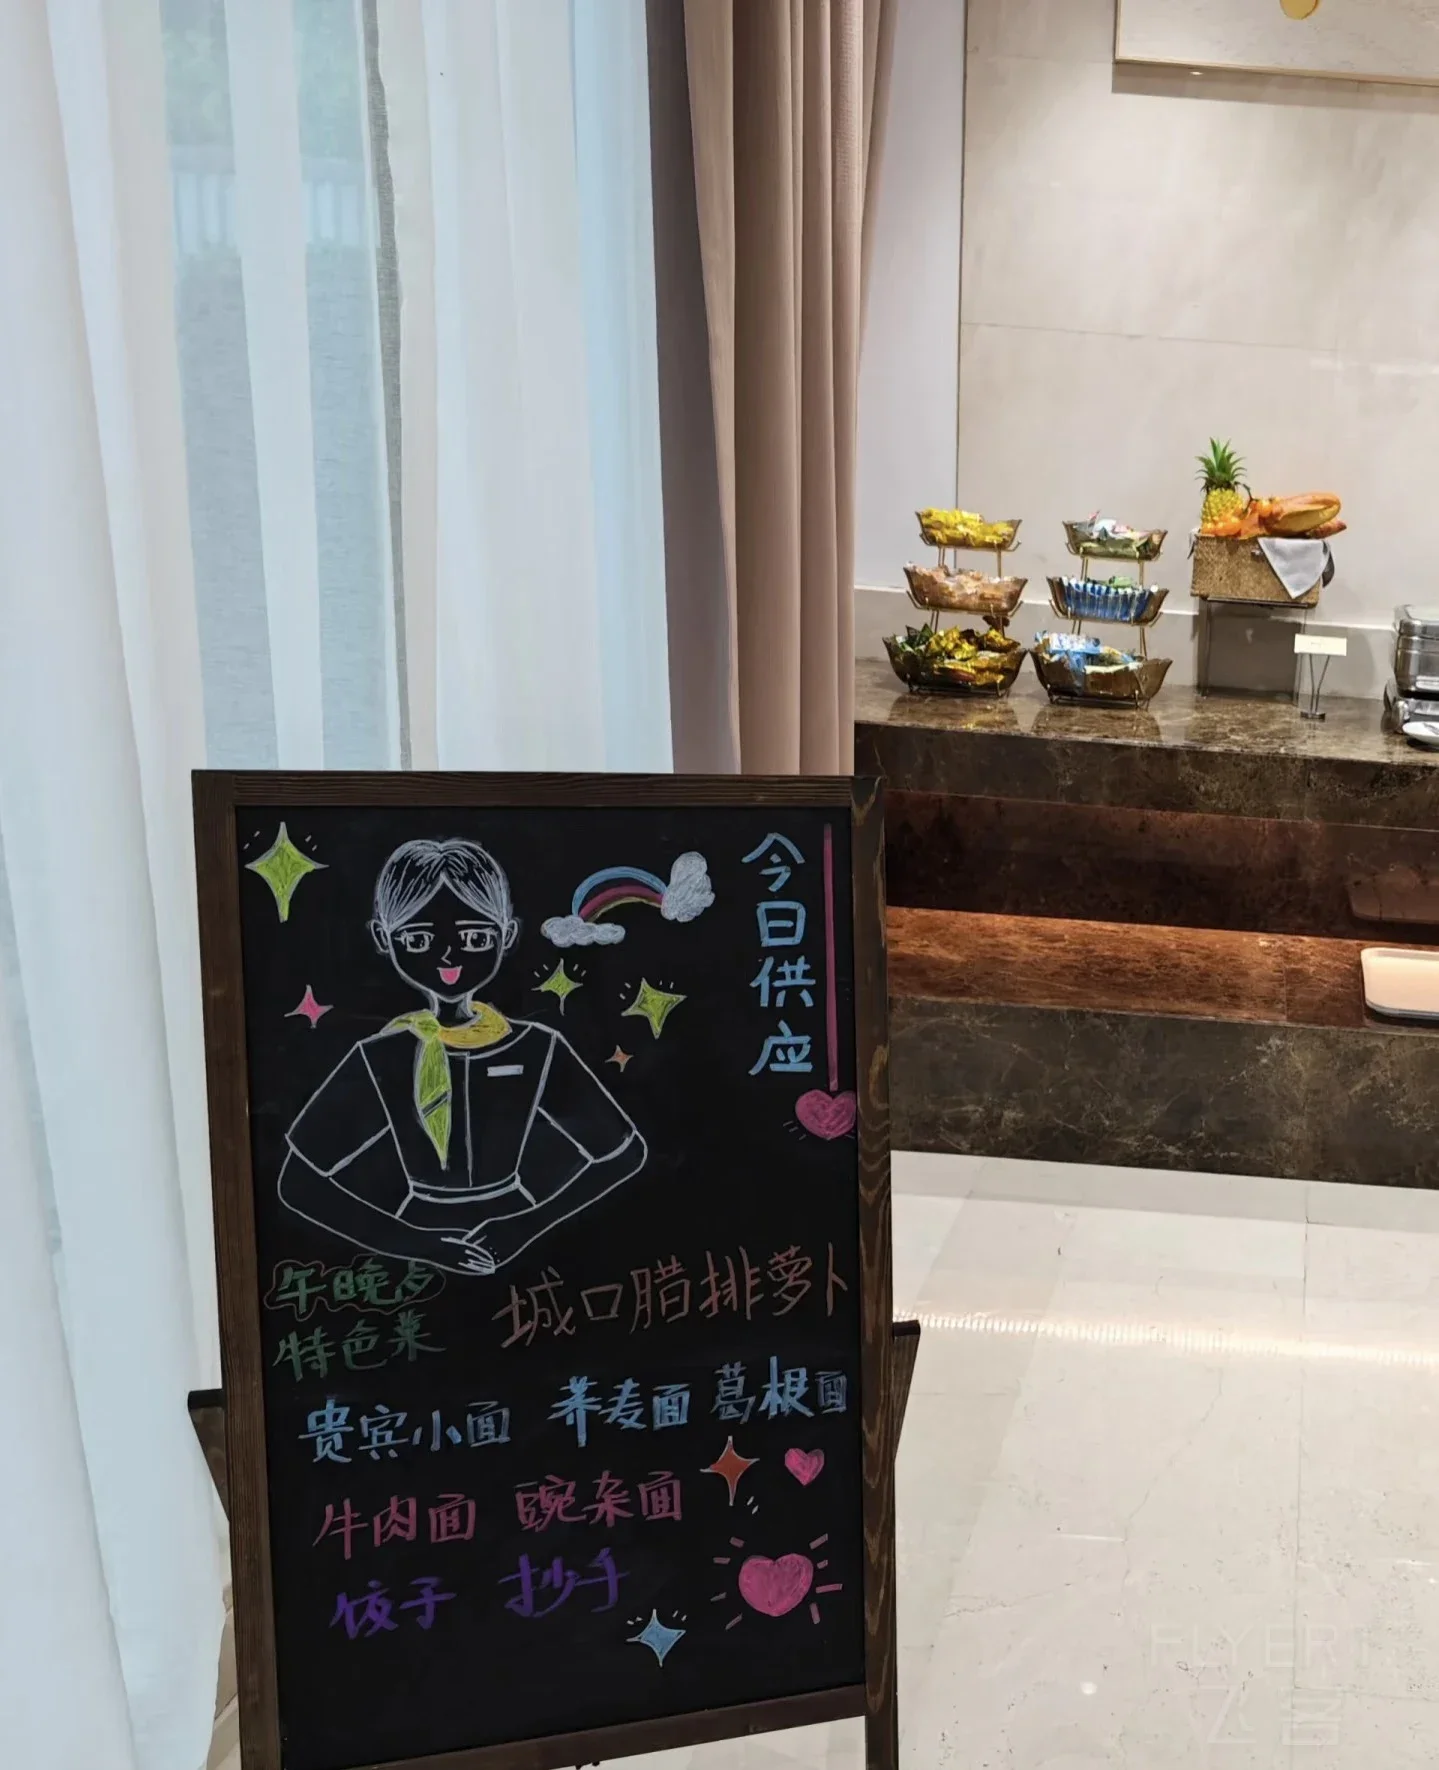 今日供应
午晚点
特色菜
城口腊排萝卜
贵宾小面 荞麦面 葛根面
牛肉面 豌杂面
饺子 抄手
FLYERT
飞客